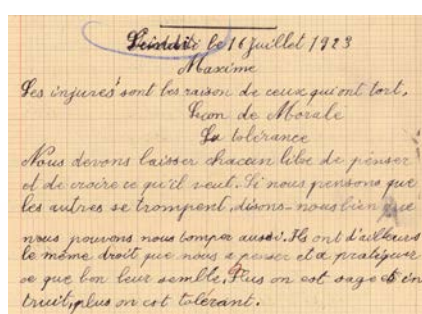 le 16 Juillet 1923
Maxime
Les injures sont les raison de ceux qui ont tort.
Leçon de Morale
La tolérance
Nous devons laisser chacun libre de penser
et de croire ce qu'il veut. Si nous pensons que
les autres se trompent, disons-nous bien que
nous pouvons nous tomper aussi. Ils ont d'ailleurs
le même droit que nous a penser et a pratiquer
ce que bon leur semble. Plus on est sage et ins
truit, plus on est tolérant.